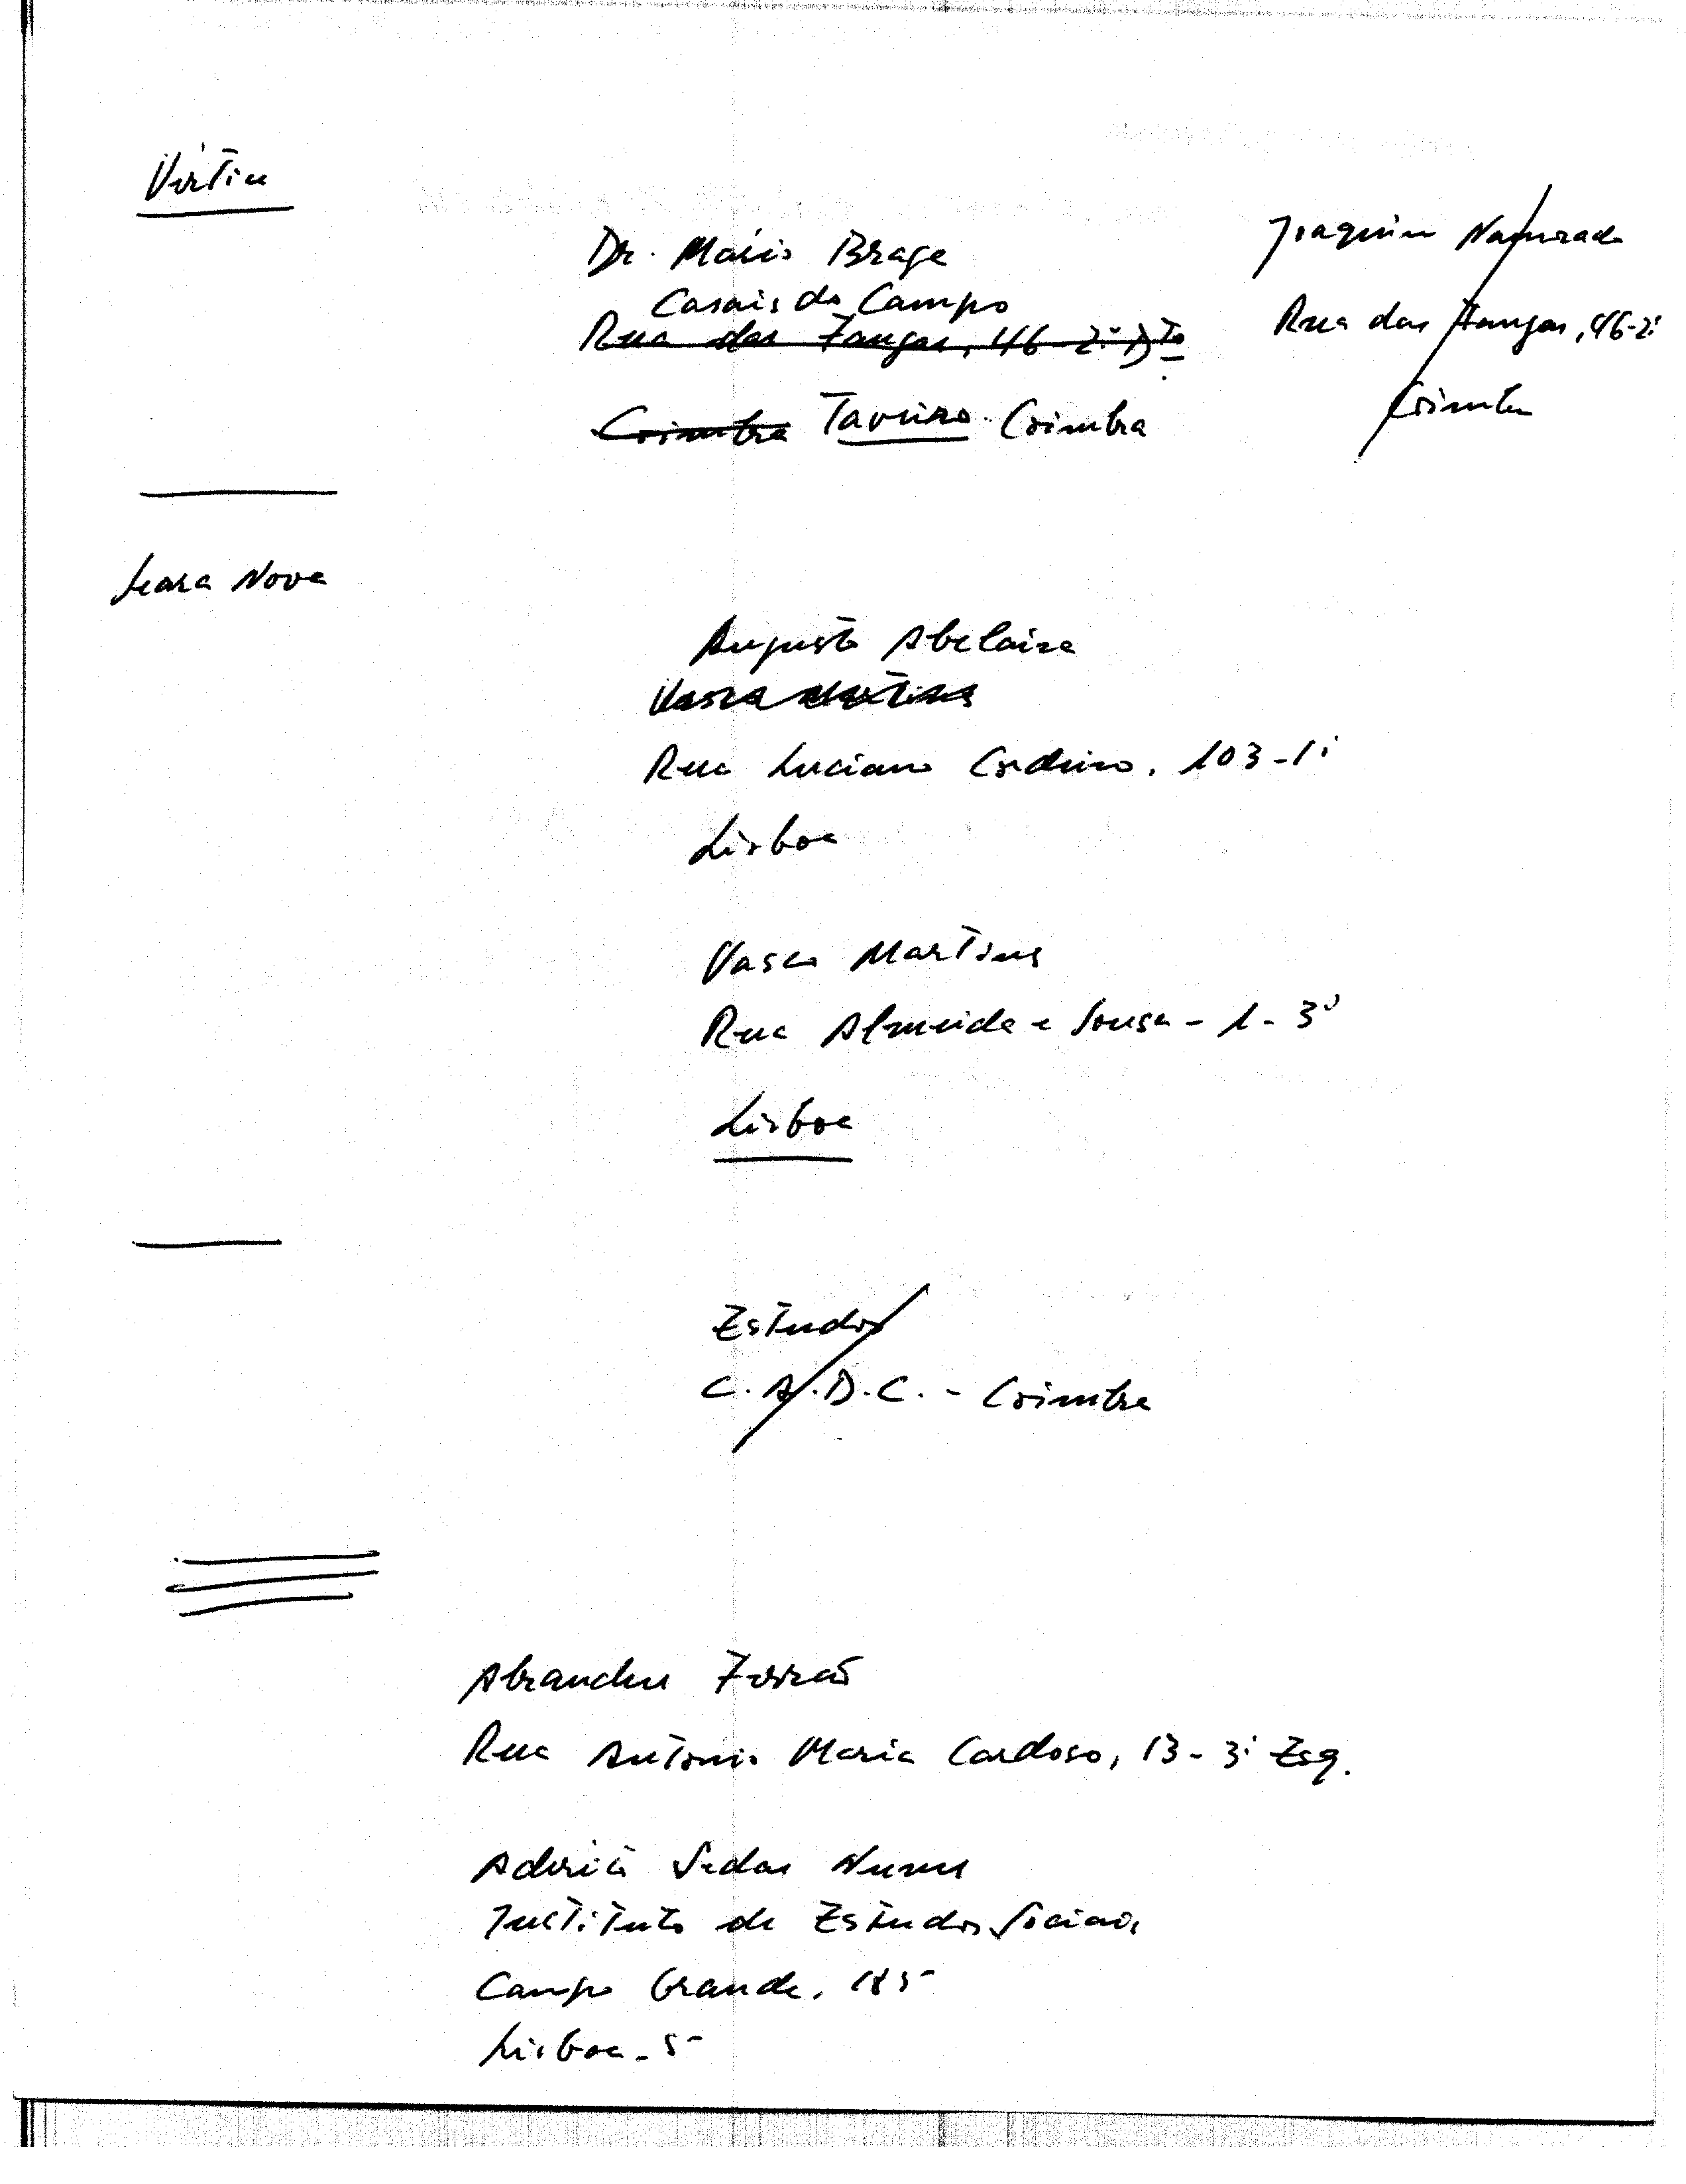 Vértice
Dr. Mário Braga
Casais do Campo
Rua das Fangas, 46-2º Dto
Coimbra Taveiro. Coimbra
Joaquim Namorado
Rua das Fangas, 46-2º
Coimbra
Seara Nova
Augusto Abelaira
Vasco Martins
Rua Luciano Cordeiro, 103-1º
Lisboa
Vasco Martins
Rua Almeida e Sousa - 1 - 3º
Lisboa
Estudos
C.A.D.C. - Coimbra
Abranches Ferrão
Rua António Maria Cardoso, 13 - 3º Esq.
Adérito Sedas Nunes
Instituto de Estudos Sociais
Campo Grande, 185
Lisboa - 5